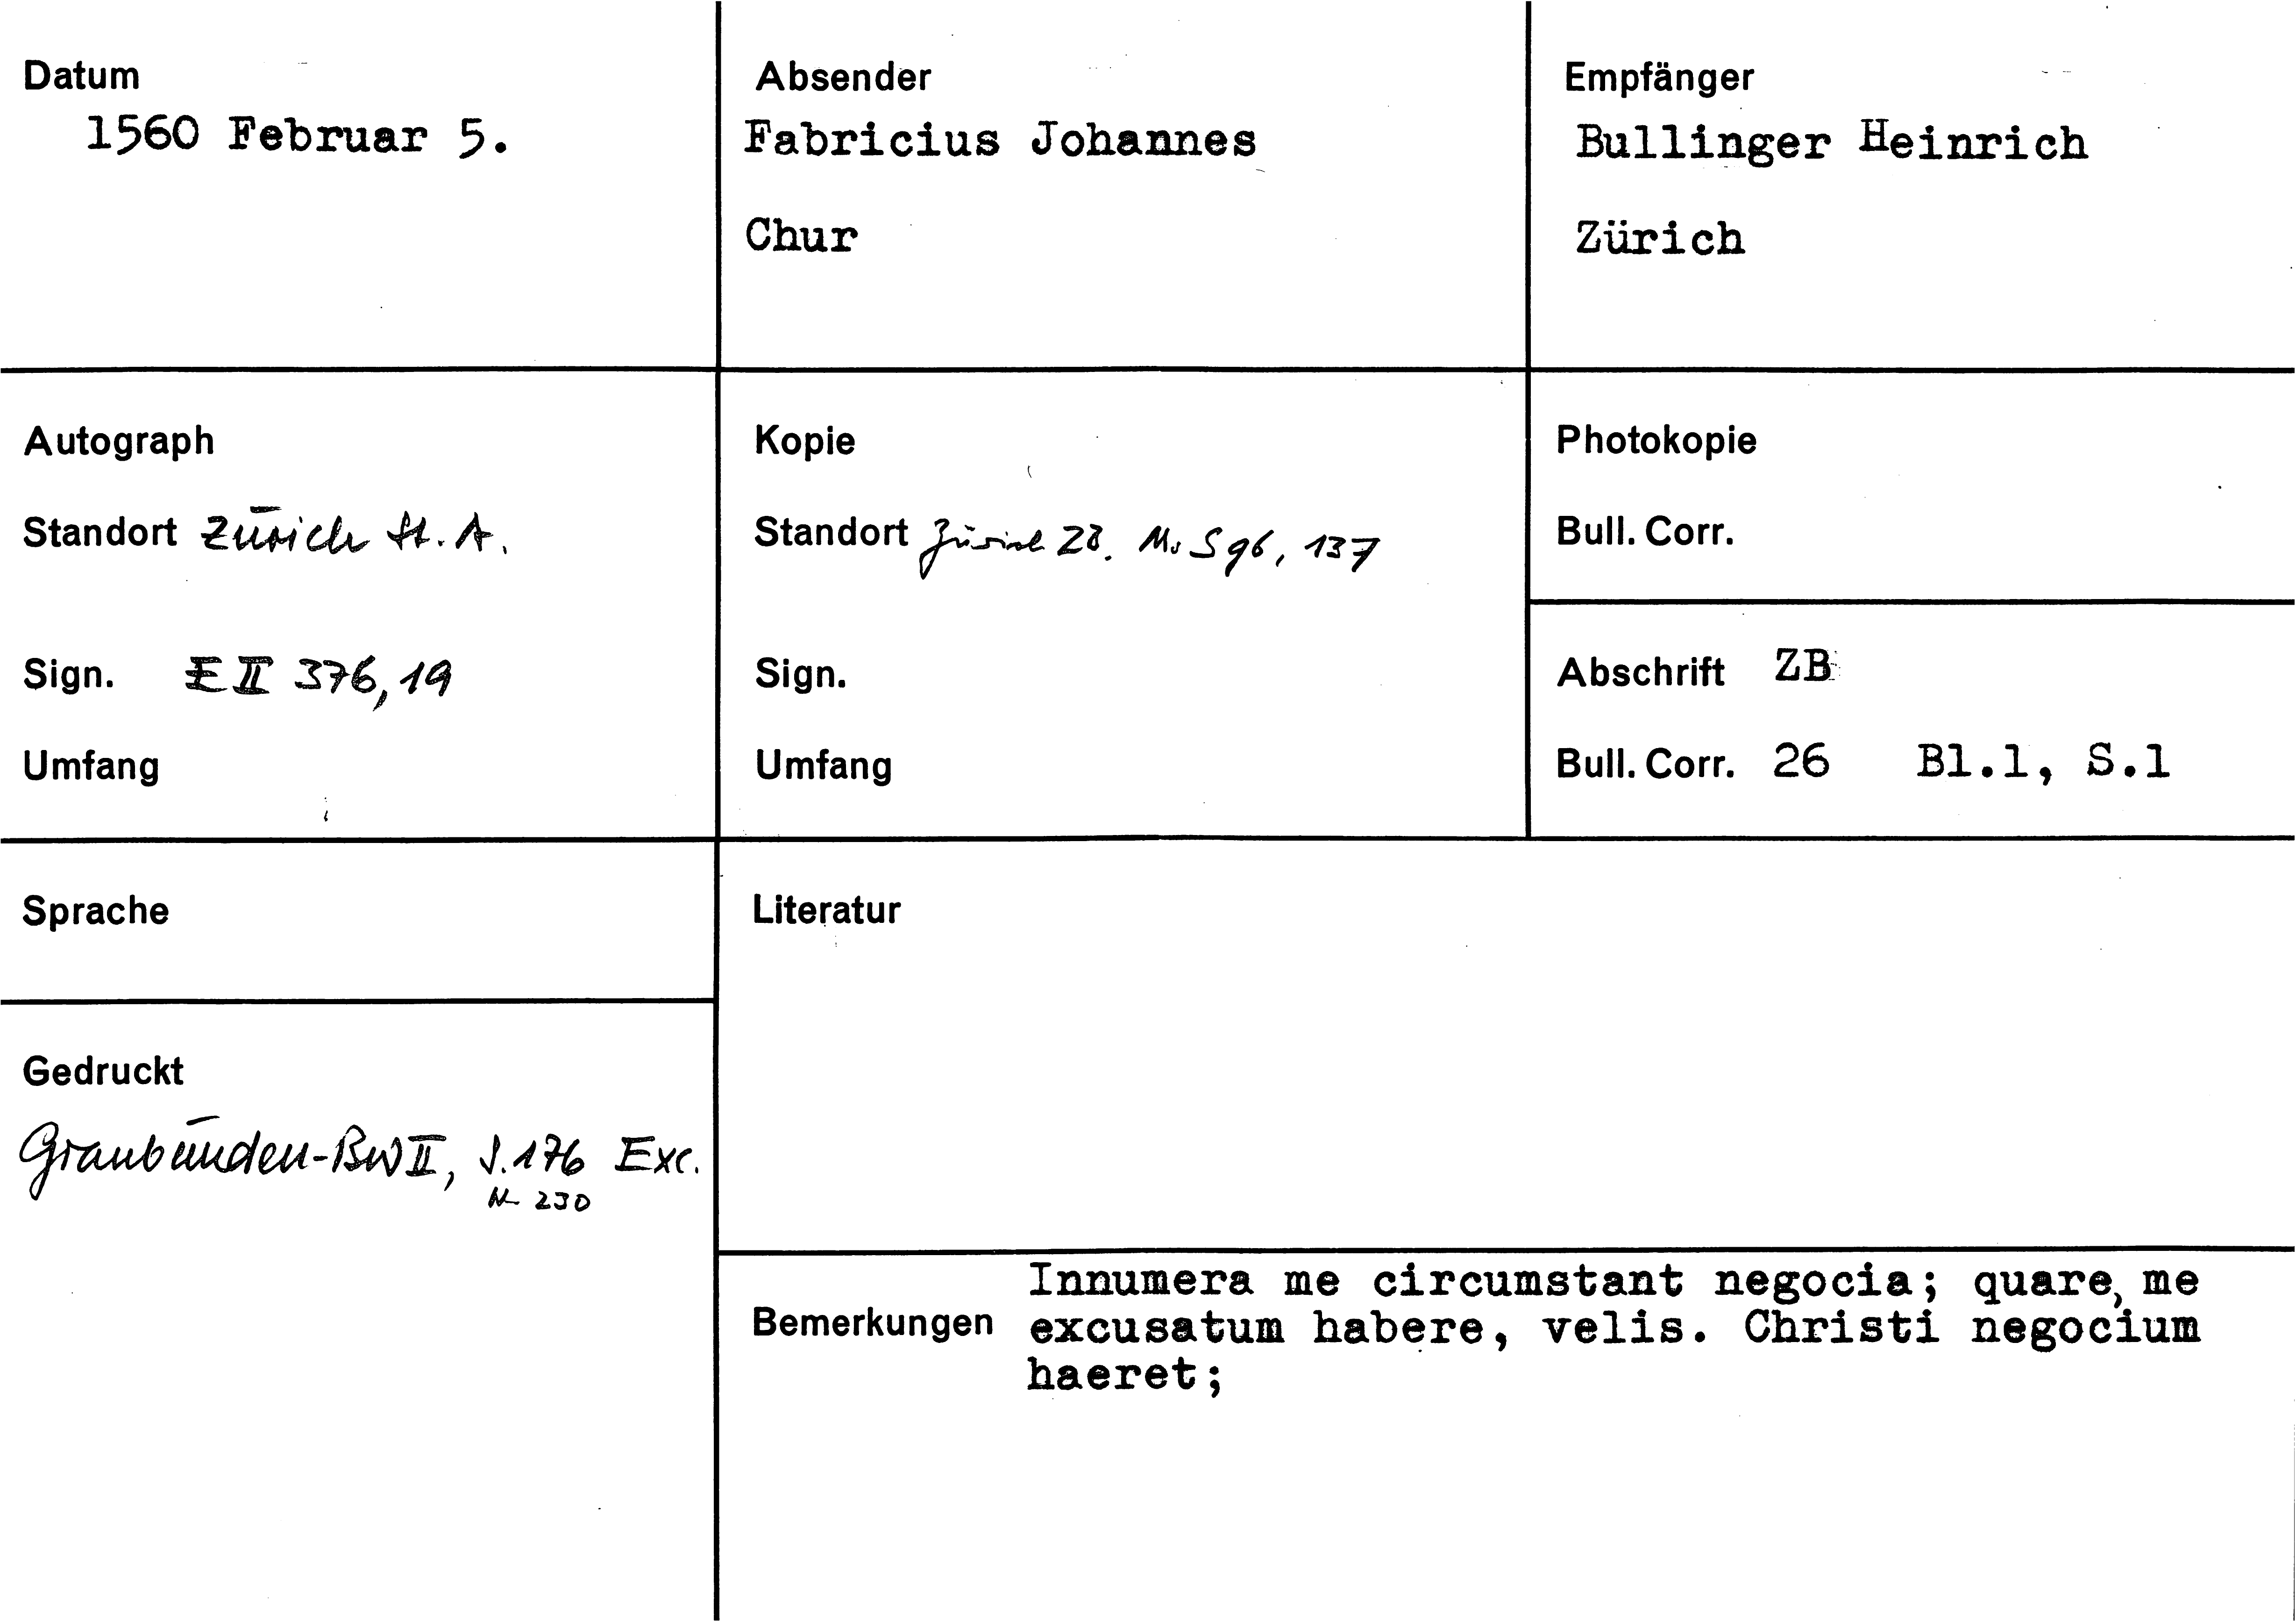 Datum
1560 Februar 5.
Absender
Fabricius Johannes
Chur
Empfänger
Bullinger Heinrich
Zürich
Autograph
Standort Zürich St. A.
Sign. E II 376, 19
Umfang
Kopie
Standort Zürich ZB. Ms S 96, 137
Sign.
Umfang
Photokopie
Bull. Corr.
Abschrift ZB
Bull. Corr. 26 Bl.1, S.1
Sprache
Literatur
Gedruckt
Graubünden-BW II, S. 176 Exc.
Nr 230
Bemerkungen
Innumera me circumstant negocia; quare, me
excusatum habere, velis. Christi negocium
haeret;